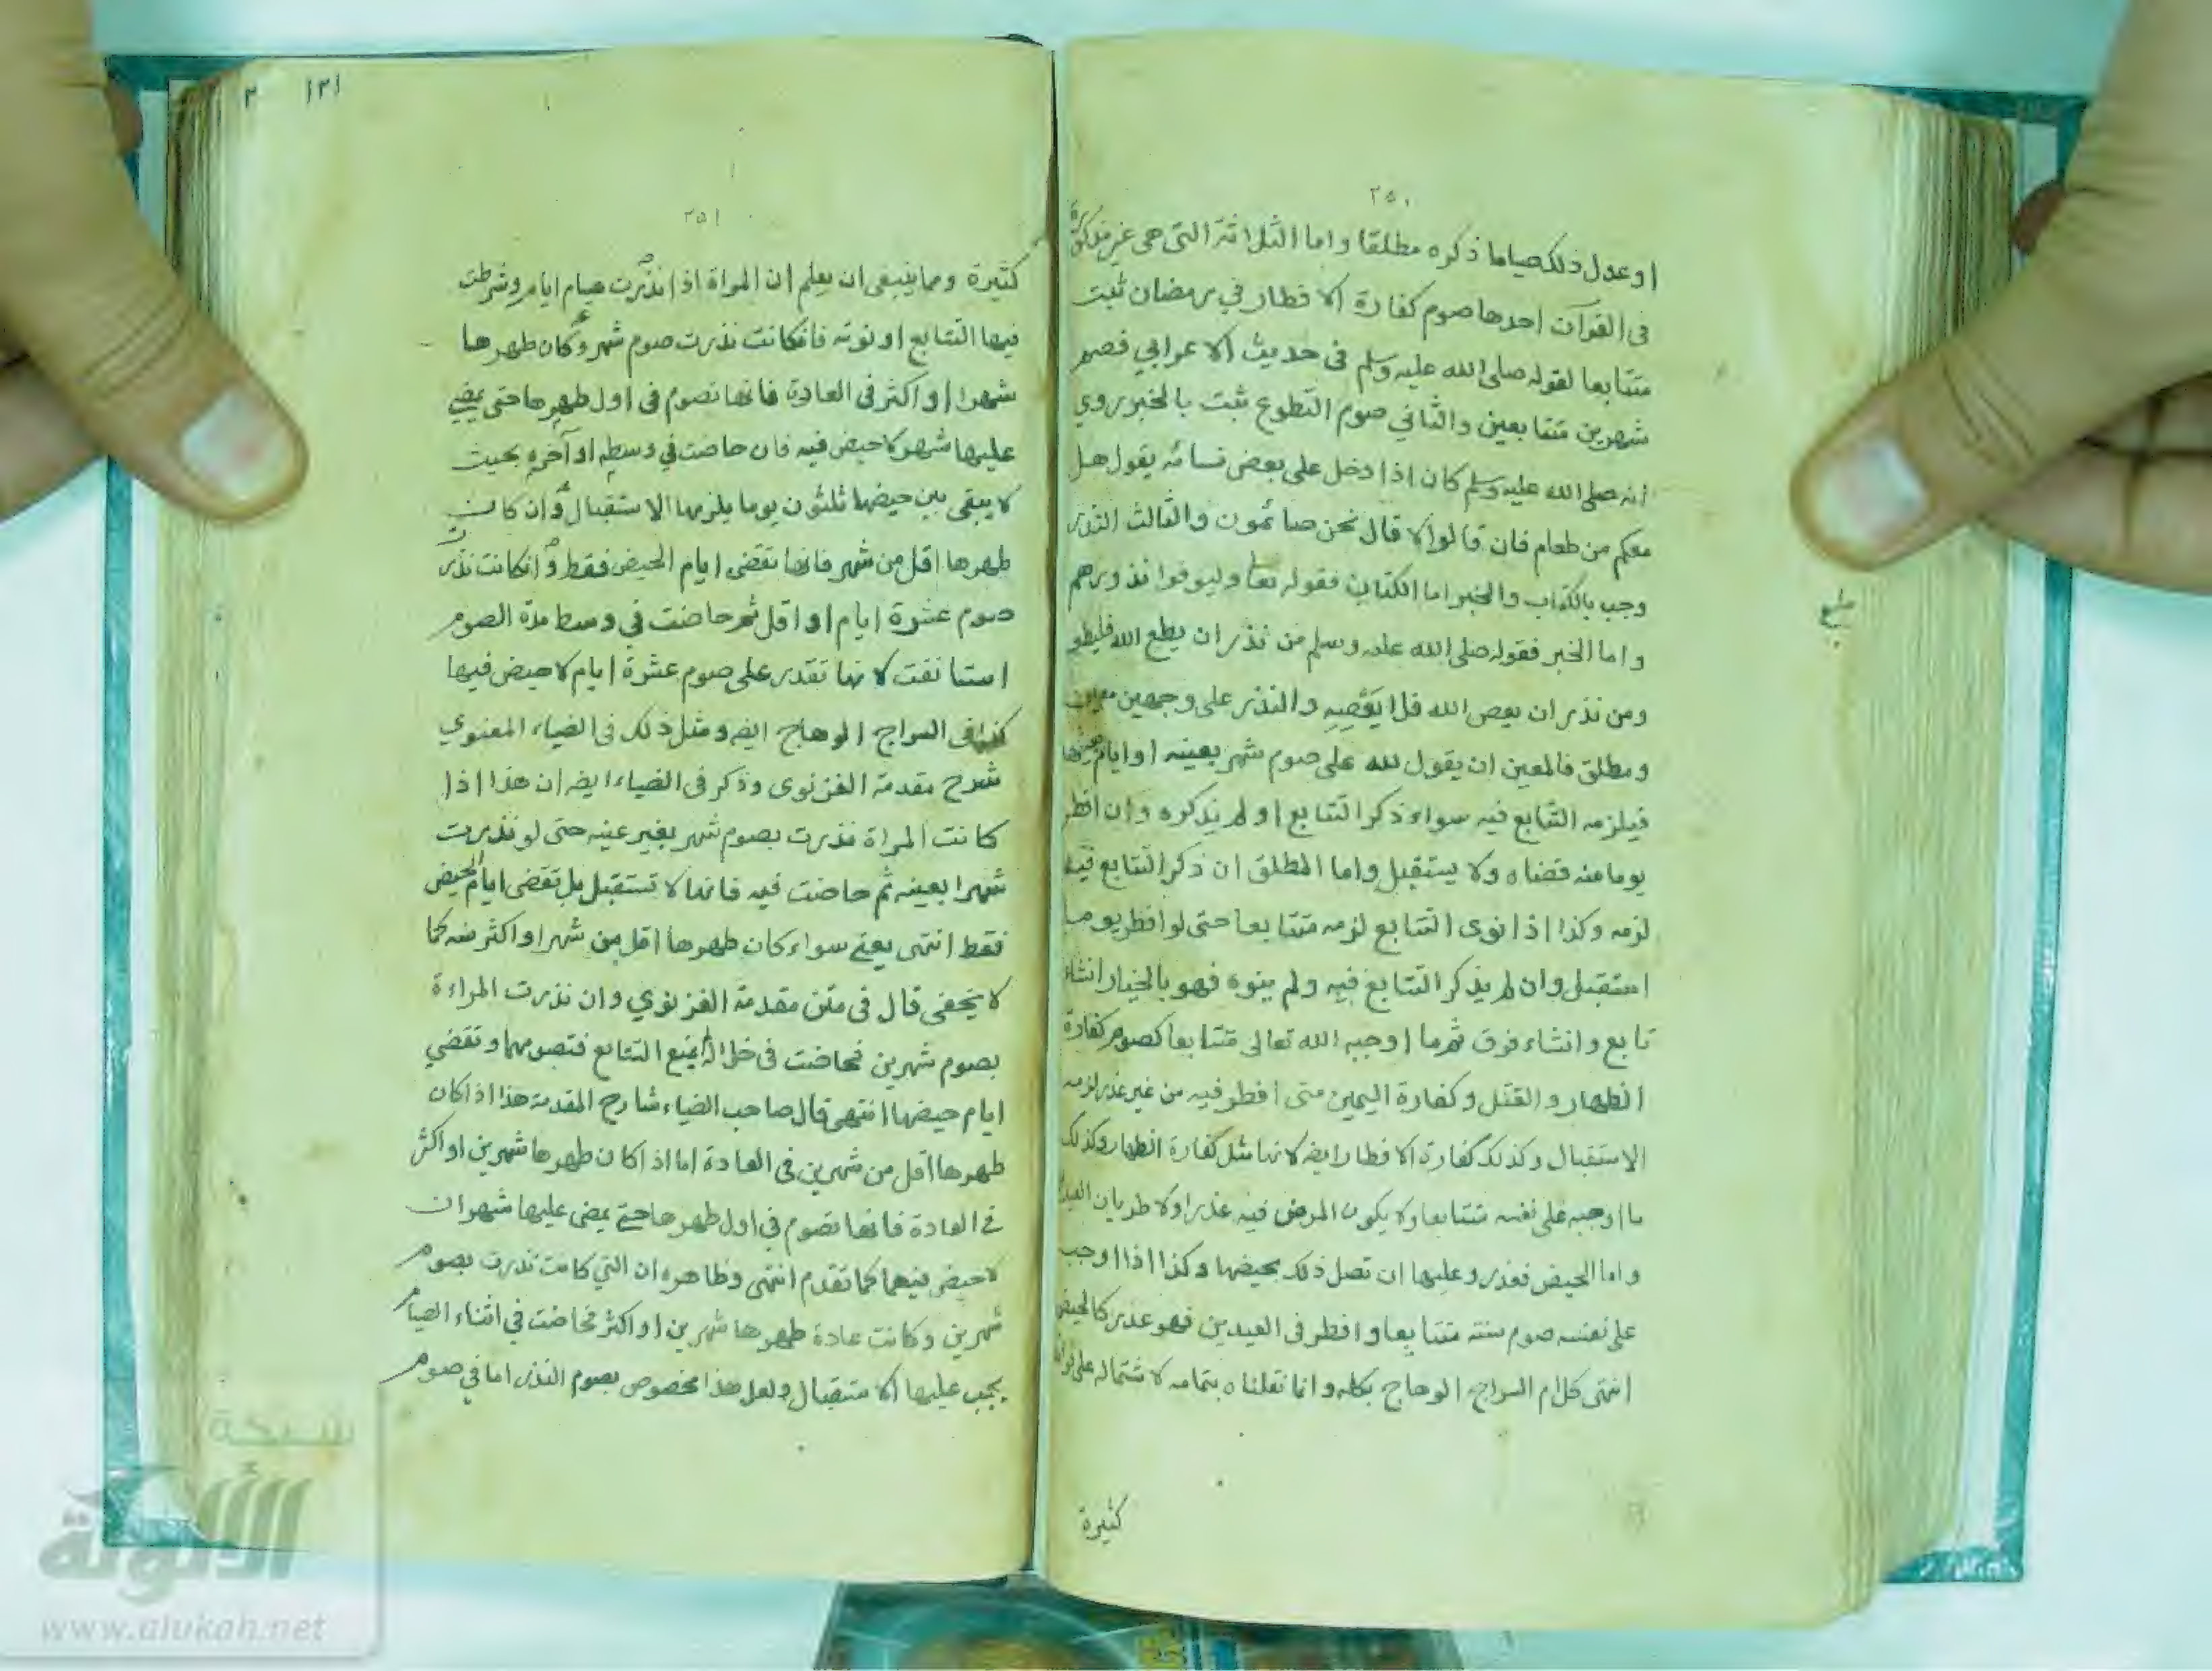 ٢٥٠
او عدل ذلك صياما ذكره مطلقا واما الثلاثة التى هى غير مذكورة
فى القرآن احدها صوم كفارة الافطار في رمضان ثبت
متتابعا لقوله صلى الله عليه وسلم فى حديث الاعرابي فصم
شهرين متتابعين والثاني صوم التطوع ثبت بالخبر روي
انه صلى الله عليه وسلم كان اذا دخل على بعض نسائه يقول هل
معكم من طعام فان قالوا لا قال نحن صائمون والثالث النذر
وجب بالكتاب والخبر اما الكتاب فقوله تعا وليوفوا نذورهم
واما الخبر فقوله صلى الله عليه وسلم من نذر ان يطع الله فليطع
ومن نذر ان يعص الله فلا يعصيه والنذر على وجهين معين
ومطلق فالمعين ان يقول لله على صوم شهر بعينه او ايام بعينها
فيلزمه التتابع فيه سواء ذكر التتابع او لم يذكره وان افطر
يوما منه قضاه ولا يستقبل واما المطلق ان ذكر التتابع فيه
لزمه وكذا اذا نوى التتابع لزمه متتابعا حتى لو افطر يوما
استقبل وان لم يذكر التتابع فيه ولم ينوه فهو بالخيار انشاء
تابع وانشاء فرق ثم ما اوجبه الله تعالى متتابعا كصوم كفارة
الظهار والقتل وكفارة اليمين متى افطر فيه من غير عذر لزمه
الاستقبال وكذلك كفارة الافطار ايضه لانها مثل كفارة الظهار وكذلك
ما اوجبه على نفسه متتابعا ولا يكون المرض فيه عذرا ولا طريان العيد
واما الحيض فعذر وعليها ان تصل ذلك بحيضها وكذا اذا اوجب
على نفسه صوم سنة متتابعا وافطر فى العيدين فهو عذر كالحيض
انتهى كلام السراج الوهاج بكله وانما نقلناه بتمامه لاشتماله على فوائد
كثيرة
١٢١ ٢
٢٥١
كثيرة ومما ينبغى ان يعلم ان المراة اذا نذرت صيام ايام وشرطت
فيها التتابع او نوته فانكانت نذرت صوم شهر وكان طهرها
شهرا او اكثر فى العادة فانها تصوم فى اول طهرها حتى يمضي
عليها شهر لا حيض فيه فان حاضت في وسطه او آخره بحيث
لا يبقى بين حيضها ثلثون يوما يلزمها الاستقبال وان كانت
طهرها اقل من شهر فانها تقضى ايام الحيض فقط وانكانت نذرت
صوم عشرة ايام او اقل ثم حاضت في وسط مدة الصوم
استانفت لانها تقدر على صوم عشرة ايام لا حيض فيها
كذا فى السراج الوهاج ايضه ومثل ذلك فى الضياء المعنوي
شرح مقدمة الغزنوى وذكر فى الضياء ايضه ان هذا اذا
كانت المراة نذرت بصوم شهر بغير عينه حتى لو نذرت
شهرا بعينه ثم حاضت فيه فانها لا تستقبل بل تقضى ايام الحيض
فقط انتهى يعني سواء كان طهرها اقل من شهر او اكثر منه كما
لا يخفى قال فى متن مقدمة الغزنوي وان نذرت المراءة
بصوم شهرين فحاضت فى خلاله يمنع التتابع فتصومهما وتقضي
ايام حيضها انتهى قال صاحب الضياء شارح المقدمة هذا اذا كان
طهرها اقل من شهرين فى العادة اما اذا كان طهرها شهرين او اكثر
في العادة فانها تصوم في اول طهرها حتى يمضى عليها شهران
لا حيض فيهما كما تقدم انتهى وظاهره ان التي كانت نذرت بصوم
شهرين وكانت عادة طهرها شهرين او اكثر فحاضت في اثناء الصيام
يجب عليها الاستقبال ولعل هذا مخصوص بصوم النذر اما في صوم
شبكة
الألوكة
www.alukah.net